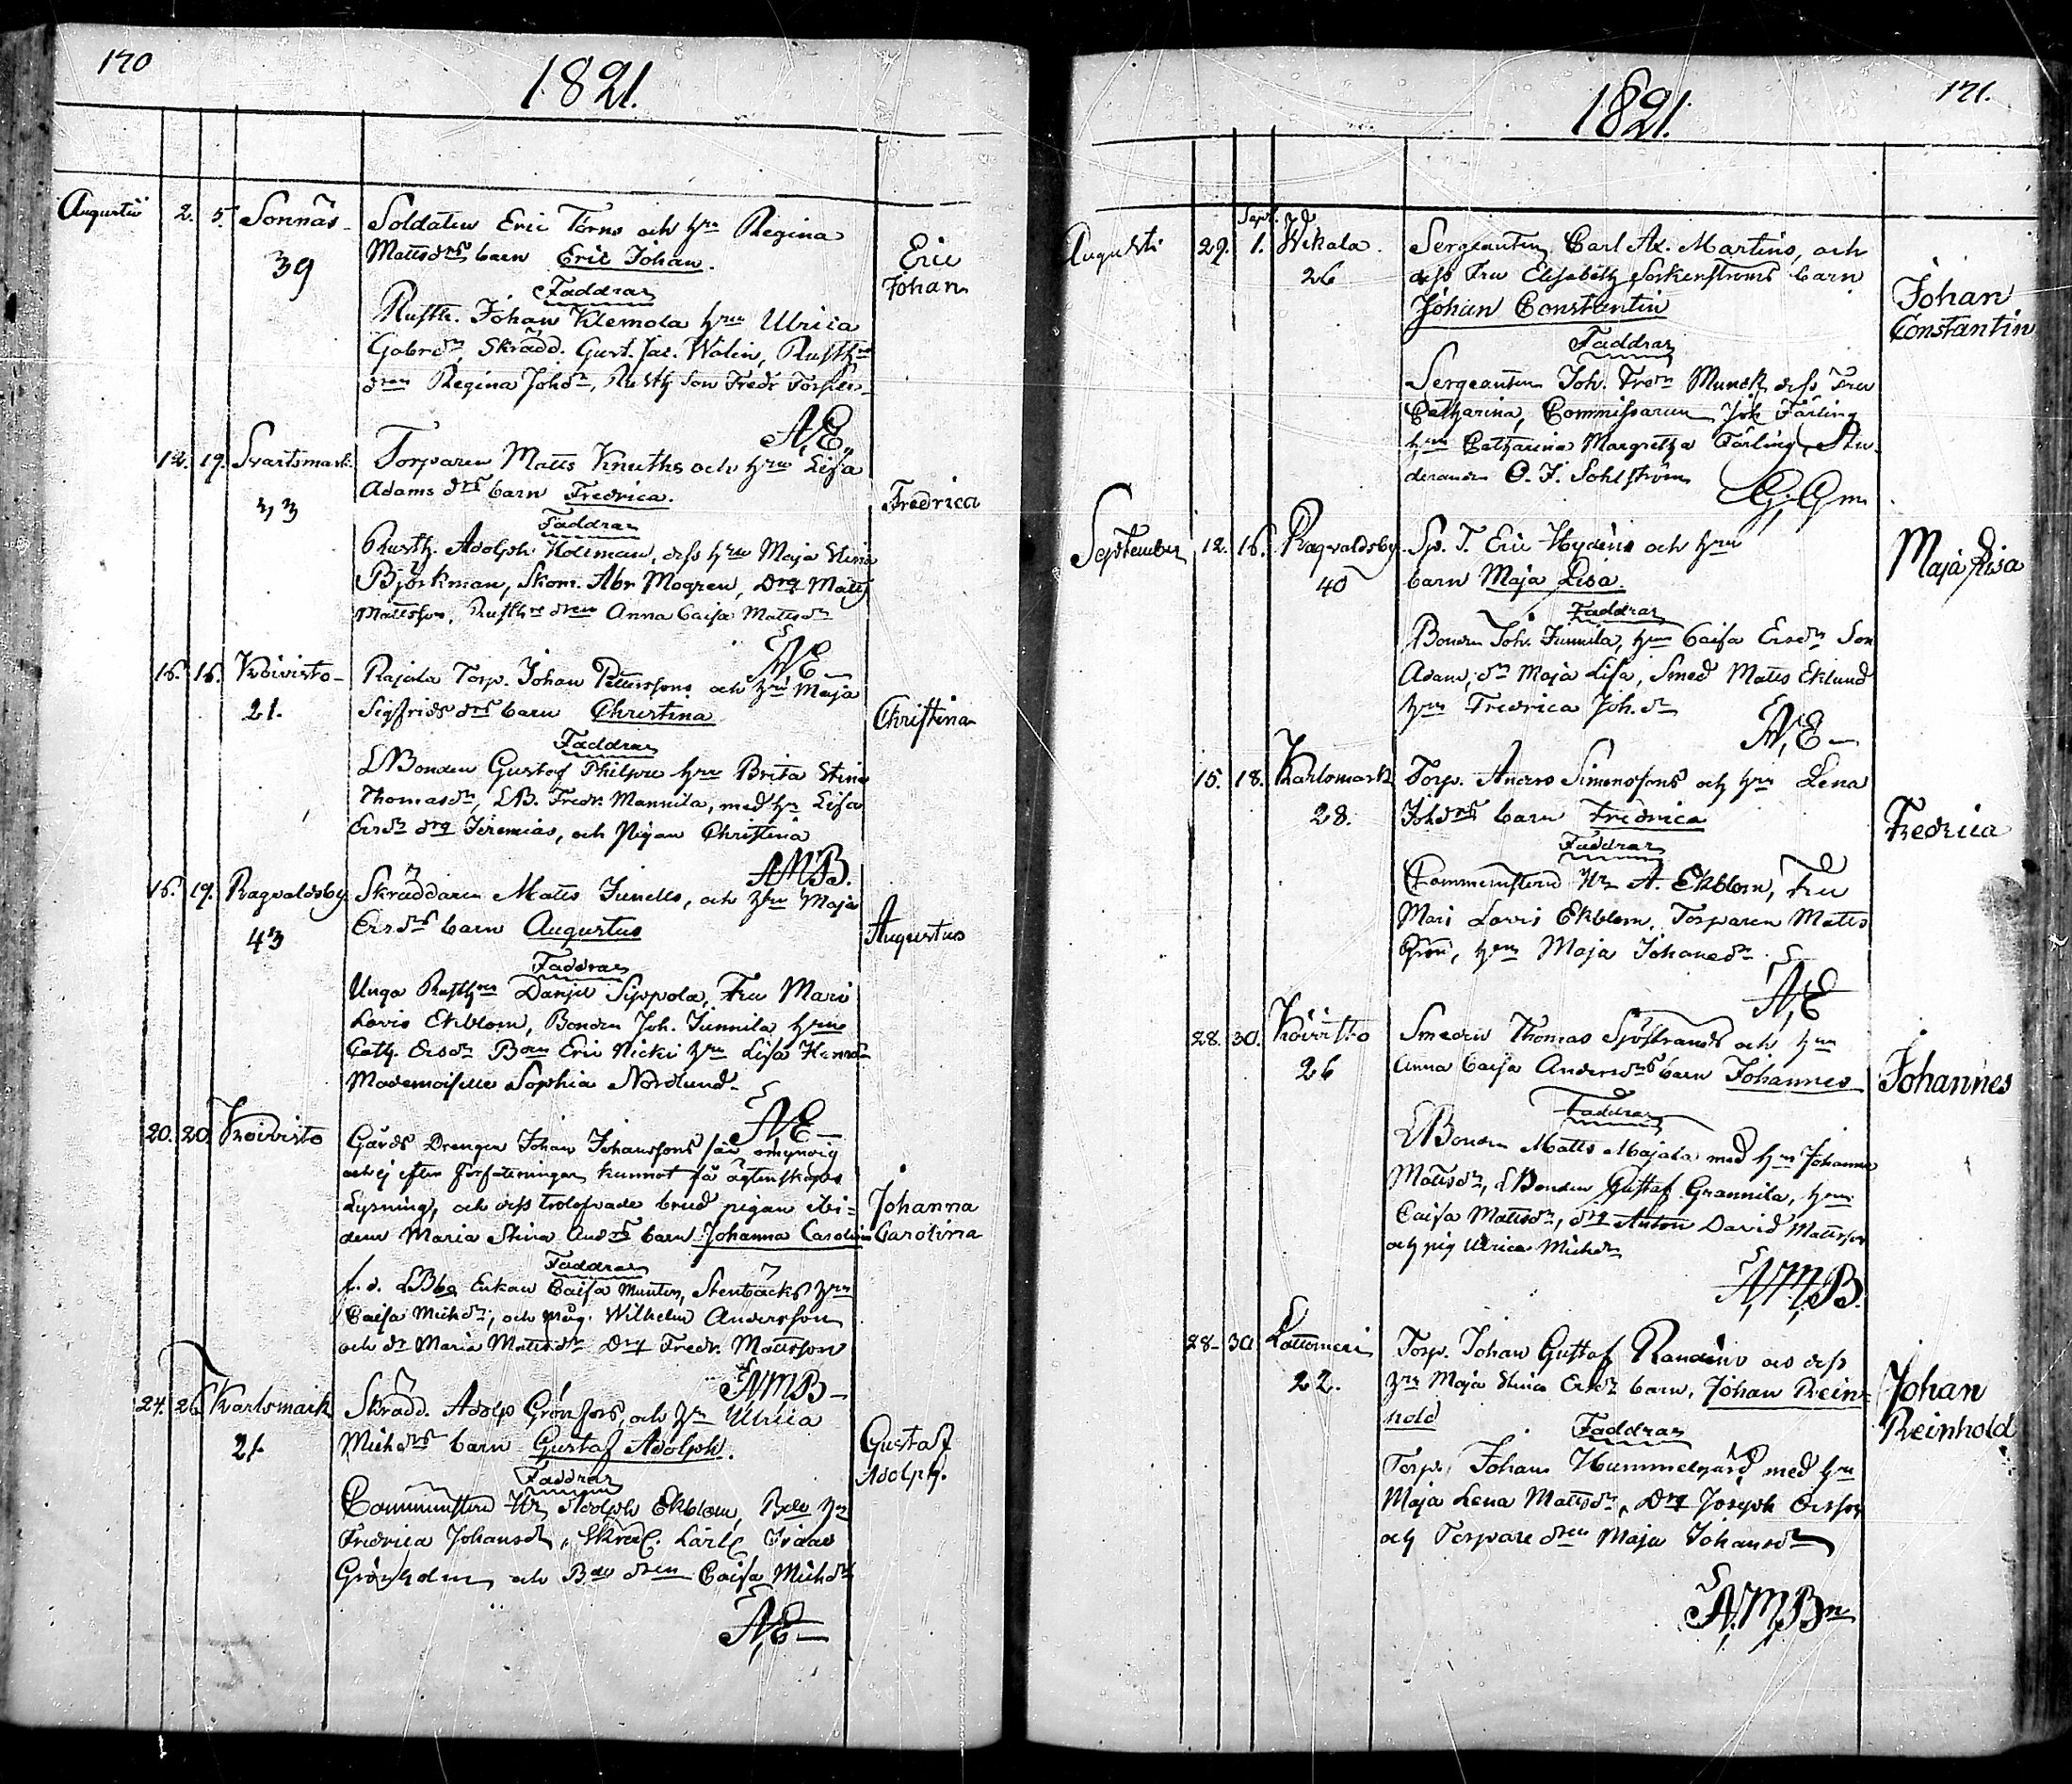 170
1821.
Augusti 2. 5. Sonnäs Soldaten Eric Törns och hru Regina
39 Mattsdrs barn Eric Johan. Eric
Faddrar Johan
Rusth. Johan Klemola hru Ulrica
Gabrdr, Skrädd. Gust. Jac. Walin, Rusth
dren Regina Johdr, Rusth Son Fredr
A,E.
12. 19. Svartsmark Torparen Matts Knuths och hru Lisa
33 Adams drs barn Fredrica. Fredrica
Faddrar
Rusth. Adolph Holtman, dess hru Maja Stina
Björkman, Skom. Abr Mogren, Drg Matts
Mattsson, Rusth dren Anna Caisa Mattsdr
A,E
16. 16. Koivisto Rajala Torp. Johan Petterssons och hru Maja
21. Sigfrids drs barn Christina Christina
Faddrar
LBonden Gustaf Philpu hru Brita Stina
Thomasdr, LB. Fredr. Mannila, med hr Lisa
Ersdr drg Jeremias, och Pigan Christina
AMB.
16. 19. Ragvaldsby Skräddaren Matts Junells, och hru Maja
43 Ersdrs barn Augustus Augustus
Faddrar
Unga Rusth Daniel Sippola, Fru Mari
Lovis Ekblom, Bonden Joh. Junnila hru
Cath. Ersdr Bon Eric Nicki hru Lisa
Mademoiselle Sophia Nordlund
A,E
20. 20. Koivisto Gårds Drengen Johan Johanssons som omyndig
och ej efter författningen kunnat få ägtenskaps
Lysning, och dess trolofvade brud pigan ibi= Johanna
dem Maria Stina Andrs barn Johanna Carolina Carolina
Faddrar
f. d. LBds Enkan Caisa Munter, Stenbäcks hru
Caisa Michdr, och Wilhelm Andersson
och dr Maria Mattsdr Drg Fredr. Mattsson
AMB
24. 26. Karlsmark Skrädd. Adolp Grönfors, och hr Ulrica
21 Michdrs barn Gustaf Adolph. Gustaf
Faddrar Adolph.
Comministern Hr Adolph Ekblom, hr
Fredrica Johansdr, Skredd. Lärl
Grönholm och dren Caisa Michdr
A,E
1821. 171.
Augusti 29. Sept. 1. Wikala Sergeanten Carl Ax. Martins, och
26 dess Fru Elisabeth barn
Johan Constantin Johan
Faddrar Constantin
Sergeanten Joh. Fredr Munck dess Fru
Catharina, Commissarien Joh Färling
hru Catharina Margretha Färling, Stu=
deranden O. J. Sohlström
G. Gm
September 12. 16. Ragvaldsby Sp. T. Eric Hydéns och hru
40 barn Maja Lisa. Maja Lisa
Faddrar
Bonden Joh. Junnila, hru Caisa Ersdr Son
Adam, dr Maja Lisa, Smed Matts Eklund
hru Fredrica Joh. dr
A,E
15. 18. Karlsmark Torp. Anders Simonssons och hru Lena
28. Johdrs barn Fredrica Fredrica
Faddrar
Comministern Hr A. Ekblom, Fru
Mari Lovis Ekblom, Torparen Matts
Grön, hru Maja Johansdr
A,E
28. 30. Koivisto Smeden Thomas Sjöstrands och hru
26 Anna Caisa Andersdrs barn Johannes Johannes
Faddrar
LBonden Matts Majala med hru Johanna
Mattsdr, LBonden Gustaf Grannila, hru
Caisa Mattsdr, drg Anton David Mattsson
och pig Ulrica Michdr
A,M,B.
28. 30. Lattomeri Torp. Johan Gustaf Randéns och dess
22. hru Maja Stina Ersdr barn, Johan Rein= Johan
hold Reinhold
Faddrar
Torp. Johan Hummelgård med hru
Maja Lena Mattsdr, Drg Joseph Ersson
och Torpare dren Maja Johansdr
A.M,Bn